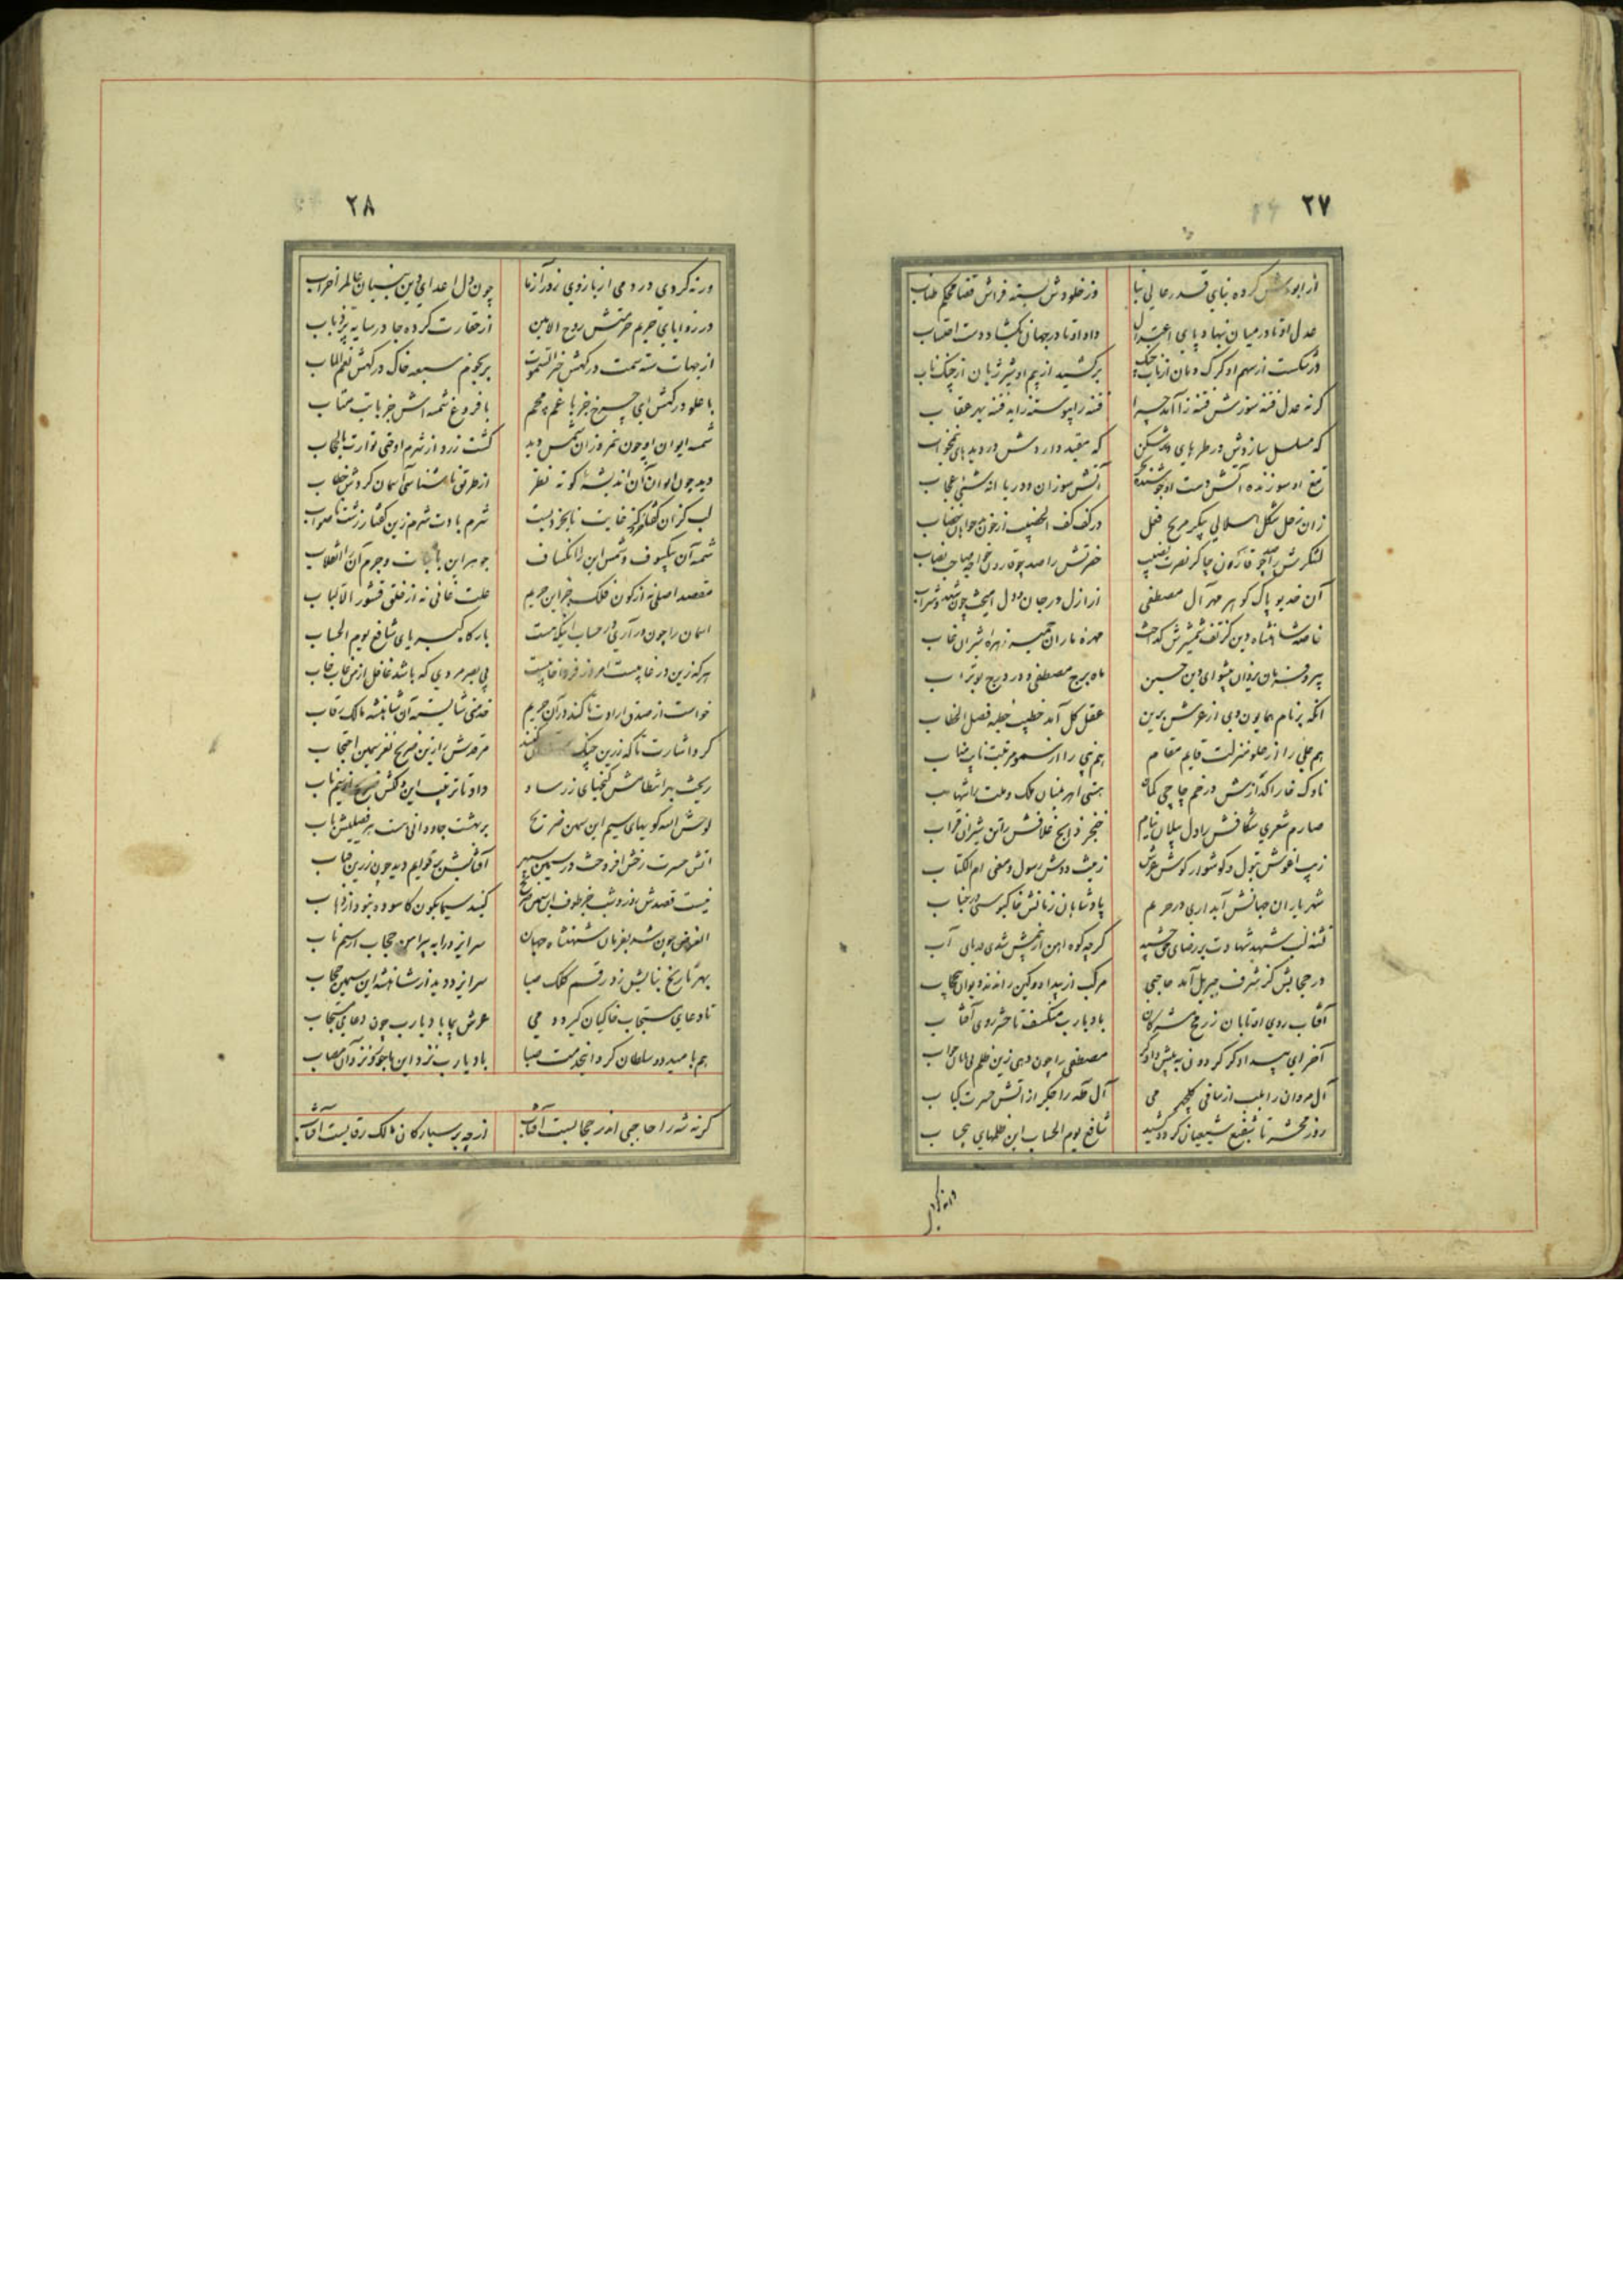 ۲۷
از ابو کرده بنای قدر عالی بنا وز خلودش بسته فراش قضا محکم طناب
عدل او تا در میان بنهاد پای اعتدال داد او تا در جهان بگشاد دست احتساب
در شکست از سهم او گرگ دمان از ناب برکشید از بیم او شیر ژیان از چنگ ناب
گر نه عدل فتنه سوزش فتنه را آمد چرا فتنه را پیوسته زاید فتنه بهر عقاب
که مسلسل سازدش در طره های پر شکن که مقید داردش در دیده های نیمخواب
تیغ او سوزنده آتش دست او جوشنده بحر آتش سوزان و دریا انه شئی عجاب
زان زحل شکل هلالی پیکر مریخ فعل در کف کف الخضیب از خون خضاب
لشکرش را صد چو قاآن چاکر نصرت نصیب حضرتش را صد چو قارون خواجه صاحب نصاب
آن خدیو پاک گوهر مهر آل مصطفی از ازل در جان و دل آمیخت چون شهد و شراب
خاصه شاهنشاه دین کز تف شمشیرش گداخت مهره ماران زهره شیران غاب
پیرو فرمان یزدان پیشوای دین حسین ماه برج مصطفی و در درج بوتراب
آنکه بر نام همایون وی از عرش برین عقل کل آمد خطیب خطبه فصل الخطاب
هم علی را از علو منزلت قایم مقام هم نبی را از سمو مرتبت نایب مناب
ناوک خارا گدازش در خم چاچی کمان هستی اهریمنان ملک و ملت را شهاب
صارم شعری شکافش را دل پیلان نیام خنجر ذابح غلافش را تن شیران قراب
زیب آغوش بتول و گوشوار گوش عرش زینت دوش رسول و معنی ام الکتاب
شهریاران جهانش آبداری در حریم پادشاهان زمانش خاکبوسی در جناب
تشنه لب شهد شهادت بر رضای حق چشید گرچه کوه آهن از خشمش شدی دریای آب
در حجابش کز شرف جبریل آمد حاجبی مرکب از بیداد و کین راندند دیوان حجاب
آفتاب روی او تابان ز رمح مشرکان باد یارب منکسف تا حشر روی آفتاب
آخر ای بیدادگر گردون به پیش دادگر مصطفی را چون دهی زین ظلم بی پایان جواب
آل مروان را بلب از ساقی گلچهره می آل طه را جگر از آتش حسرت کباب
روز محشر تا شفیع شیعیان گردد شهید شافع یوم الحساب این ظلمهای بیحساب
ورنه کردی
۲۸
ورنه کردی در دمی از بازوی زور آزما چون دل اعدای دین بنیان عالم را خراب
در زوایای حریم حرمتش روح الامین از حقارت کرده جا در سایه پر ذباب
از جهات سته سمت درگهش خیر السموت بر نجوم سبعه خاک درگهش نعم المآب
با علو درگهش ای چرخ جز با غم مجم با فروغ شمسه اش جز بایت متاب
شمسه ایوان او چون نمروزان شمس دید گشت زرد از شرم او حتی توارت بالحجاب
دید چون ایوان آن اندیشه کوته نظر از طریق ناشناسی آسمان کردش خطاب
لب گزان گفتا خرد کز غایت نابخردیست شرم بادت شرم زین گفتار زشت ناصواب
شمسه آن بیکسوف و شمس این را انکساف جوهر این با ثبات و جرم آن را انقلاب
مقصد اصلی نه از کون فلک جز این حریم علت غائی نه از خلق قشور الا لباب
آسمان را چون در آری در حساب اینک هست بارگاه کبریای شافع یوم الحساب
هر که زین در غایبست امروز فردا خایبست بی بصر مردی که باشد غافل از من غاب خاب
خواست از صدق ارادت تا کند در آن حریم خدمتی شایسته آن شاهنشه مالک رقاب
کرد اشارت تا که زرین کنند مرقدش را زین ضریح نغز سیمین احتجاب
ریخت بهر انتظامش گنجهای زر ساو داد تا ترتیب این دلکش ضریح از سیم ناب
لوحش الله گو بیهای سیم این سیمین ضریح بر بهشت جاودانی هست هر فصلیش باب
آتش حسرت رخش افروخت در سیمین سپهر آفتابش بر قوایم دید چون زرین قباب
نیست قصدش روز و شب جز طوف این سیمین ضریح گنبد سیمابگون کاسوده نبود از ذهاب
الغرض چون شد بفرمان شهنشاه جهان سر ایزد را به پیرامن حجاب از سیم ناب
بهر تاریخ بنایش زد رقم کلک صبا سر ایزد دید از شاهنشه این سیمین حجاب
تا دعای مستجاب خاکیان گیرد همی عرش پیما باد یارب چون دعای مستجاب
هم بامید دو سلطان کرد این خدمت صبا باد یارب نزد این ماجور و نزد آن مصاب
گر نه شه را حاجبی اندر حجابست آفتاب از چه بر سیارگان مالک رقابست آفتاب